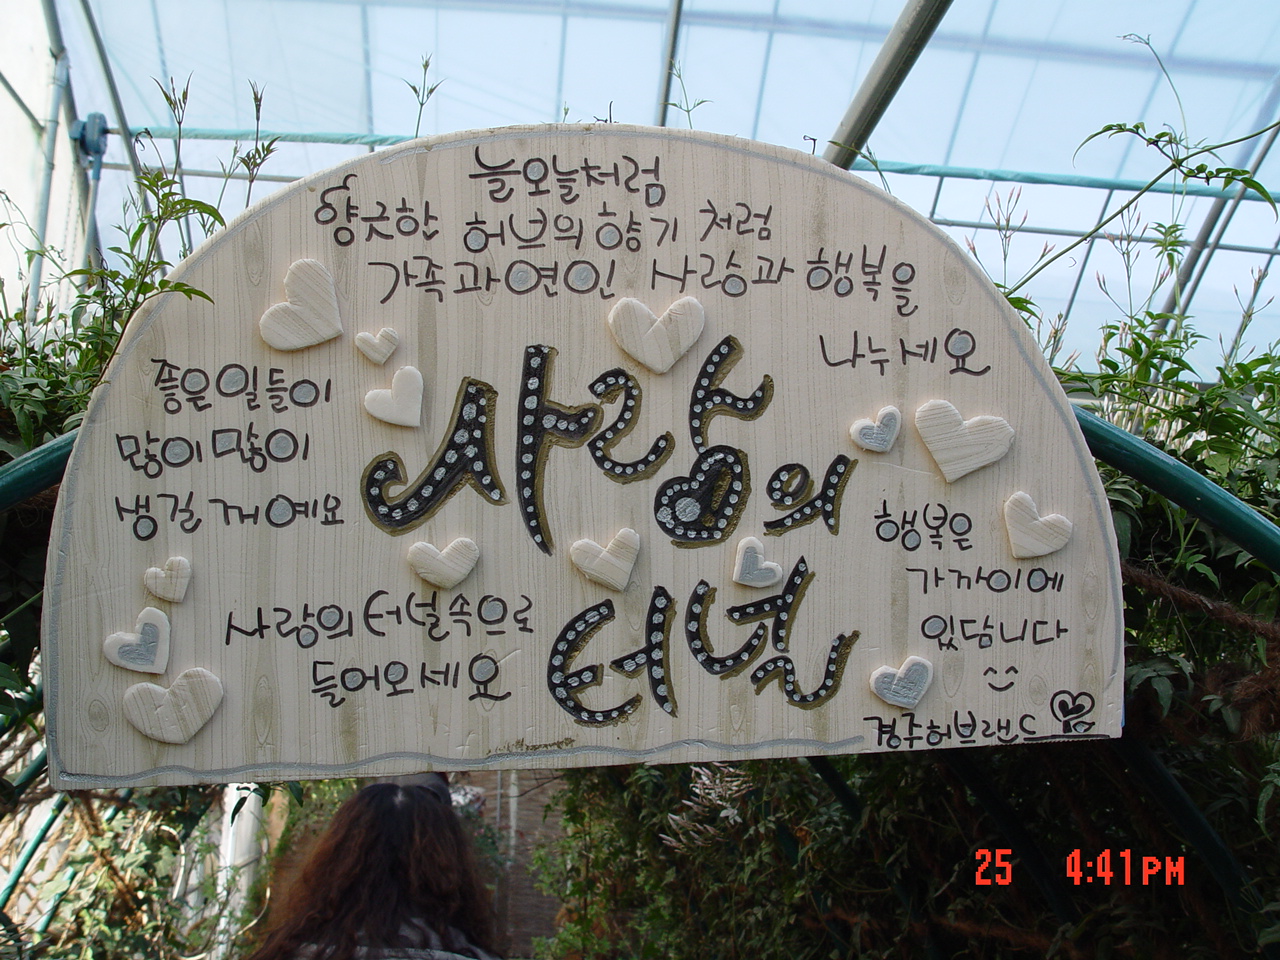 늘오늘처럼
향긋한 허브의향기 처럼
가족과연인 사랑과 행복을
나누세요
좋은일들이
많이많이
생길꺼예요
사랑의
터널
사랑의터널속으로
들어오세요
행복은
가까이에
있답니다
경주허브랜드
25 4:41PM